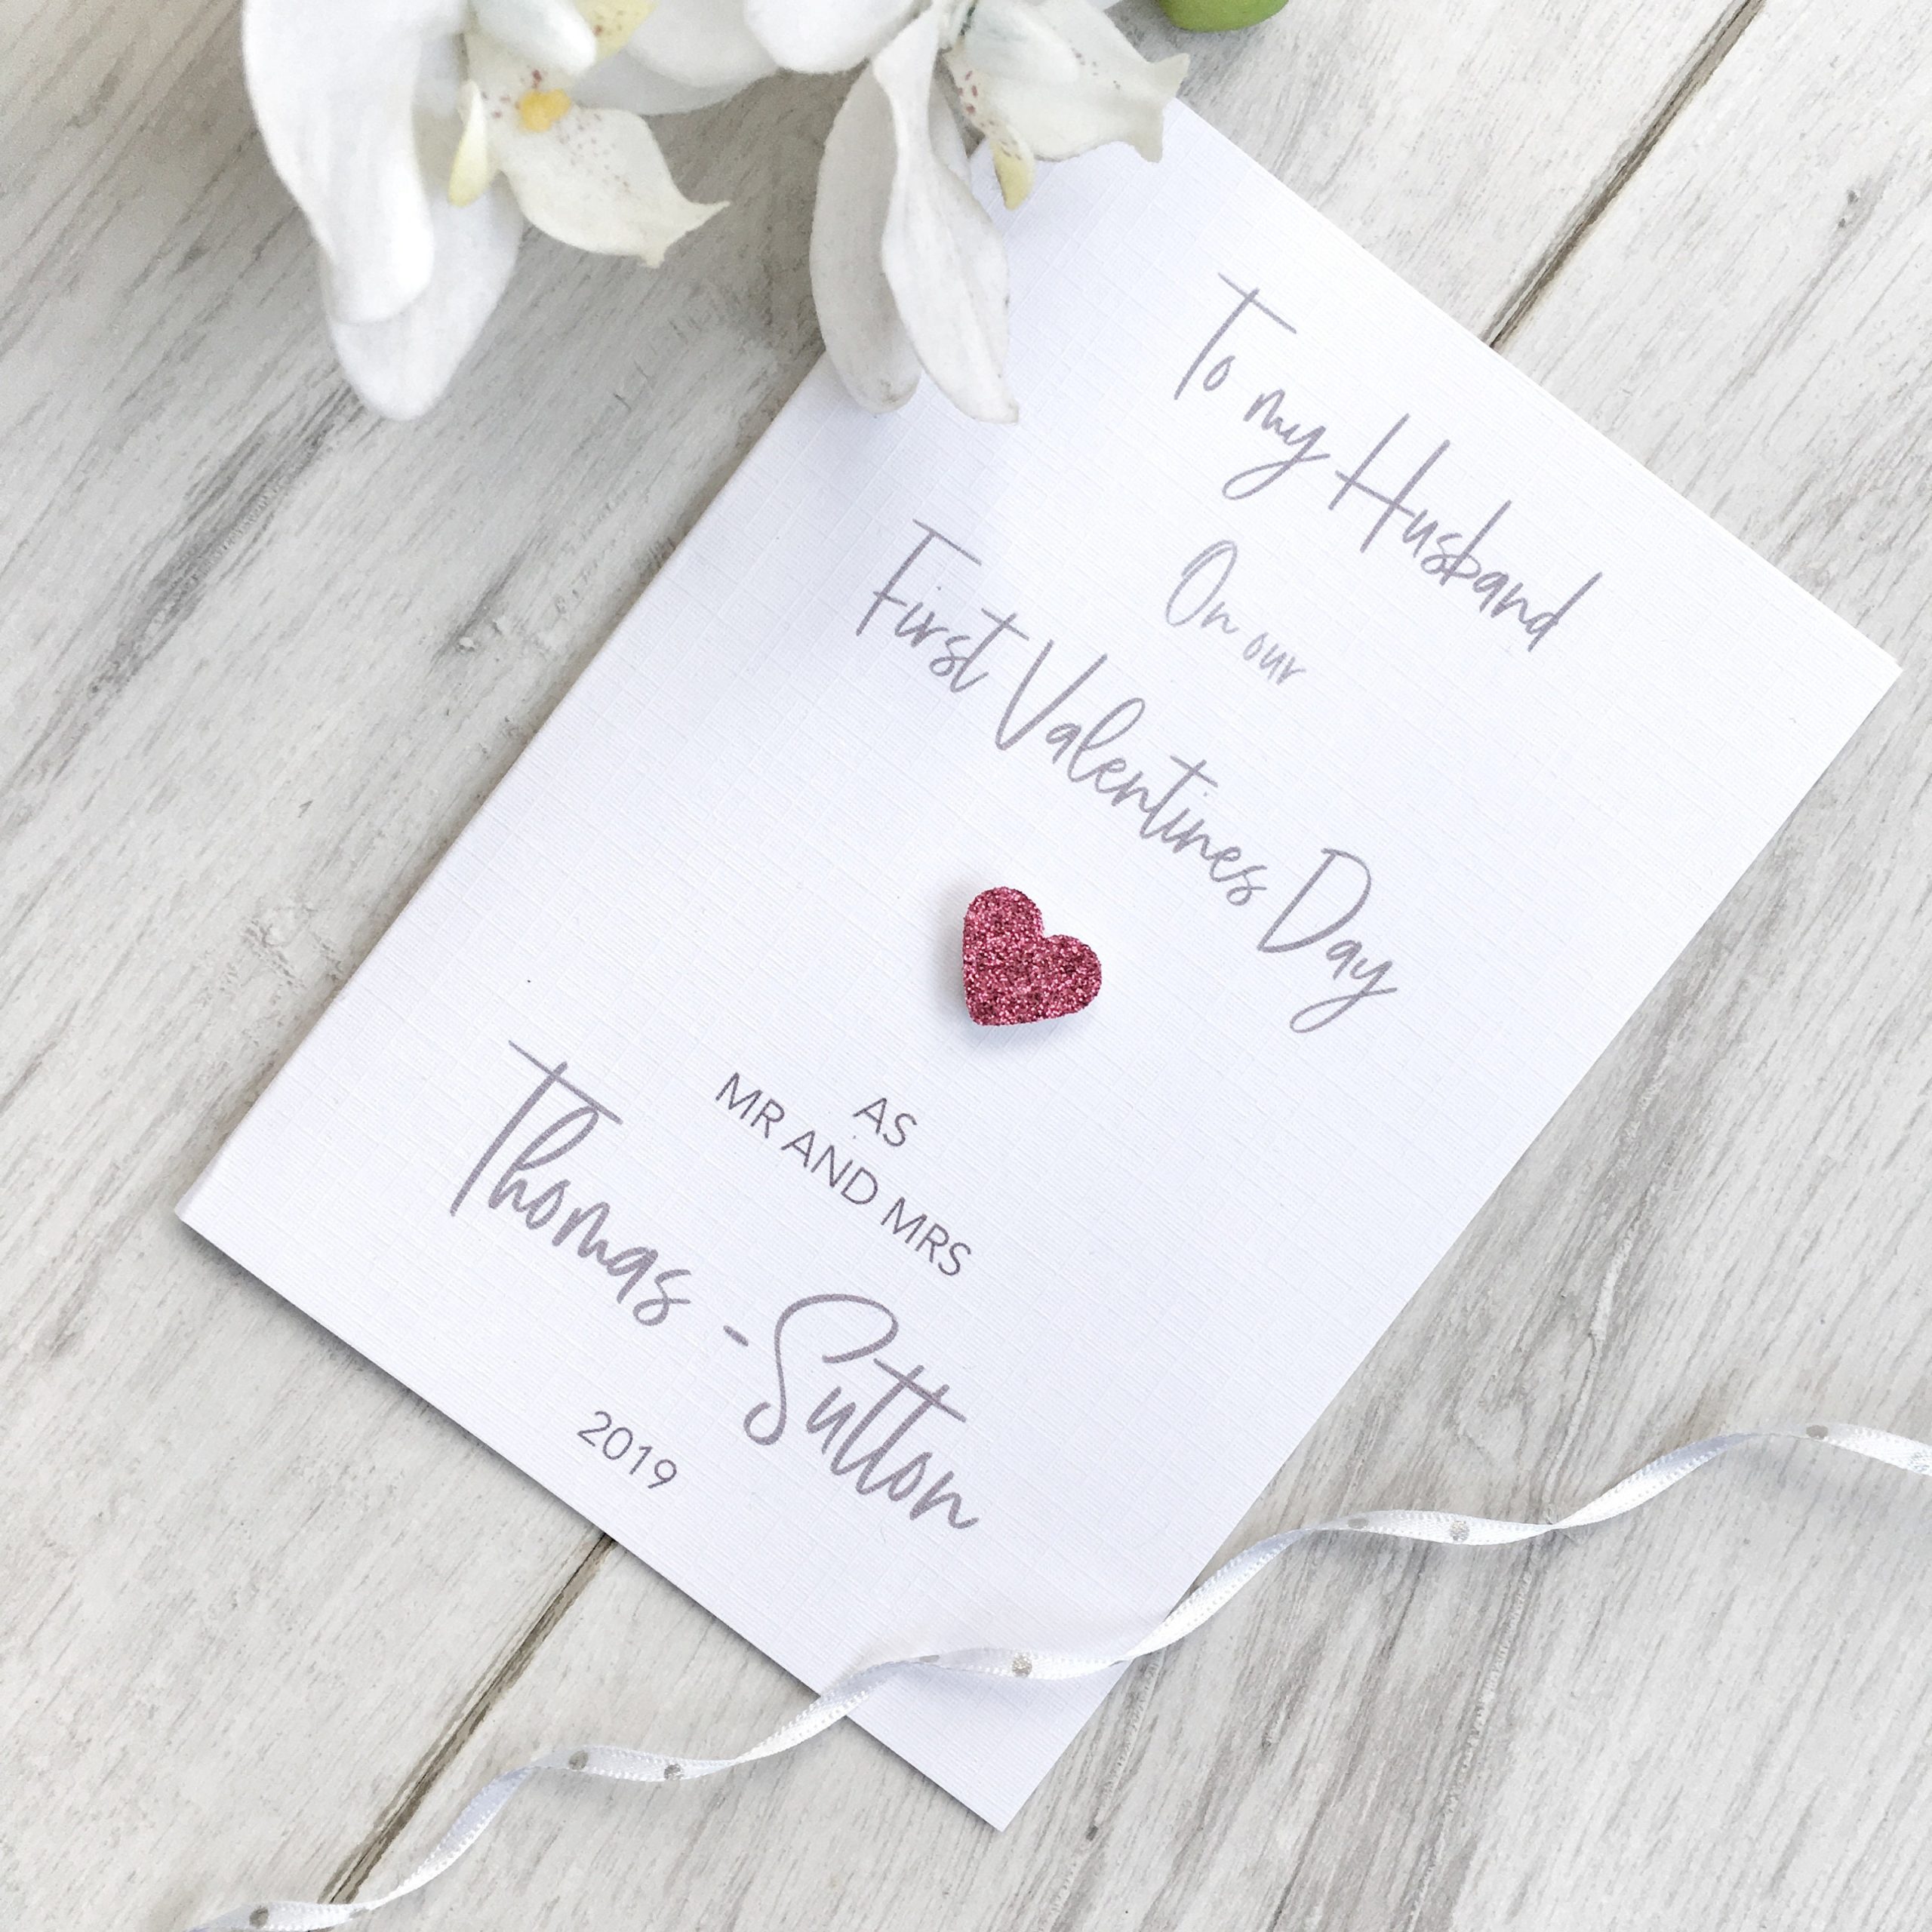 To my Husband
On our
First Valentines Day
AS
MR AND MRS
Thomas - Sutton
2019